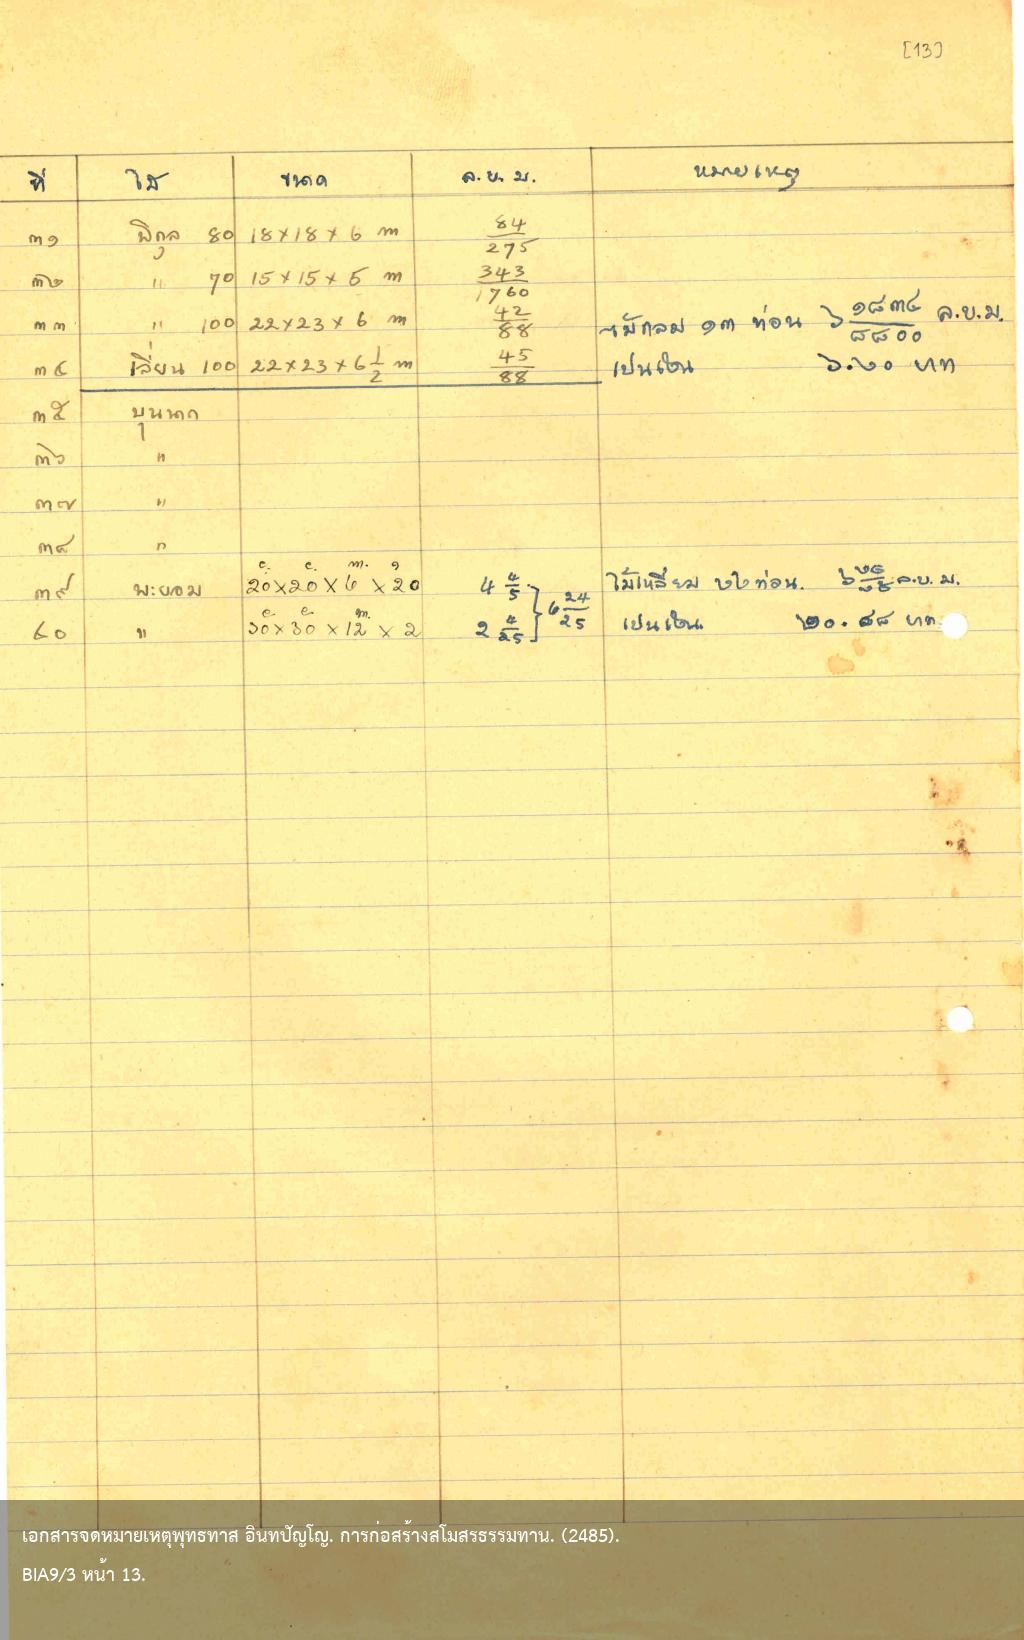 [13]
ที่ ไม้ ขนาด ล.บ.ม. หมายเหตุ
๓๑ พิกุล 80 18×18×6 m 84/275
๓๒ " 70 15×15×5 m 343/1760
๓๓ " 100 22×23×6 m 42/88 ไม้กลม ๑๓ ท่อน ๖ ๑๘๓๔/๘๘๐๐ ล.บ.ม.
๓๔ เลี่ยน 100 22×23×6 1/2 m 45/88 เป็นเงิน ๖.๒๐ บาท
๓๕ บุนนาค
๓๖ "
๓๗ "
๓๘ "
๓๙ พะยอม 20×20×6×20 4 4/5 ไม้เหลี่ยม ๒๒ ท่อน. ล.บ.ม.
๔๐ " 30×30×12×2 2 4/25 6 24/25 เป็นเงิน ๒๐.๘๘ บาท
เอกสารจดหมายเหตุพุทธทาส อินทปัญโญ. การก่อสร้างสโมสรธรรมทาน. (2485).
BIA9/3 หน้า 13.